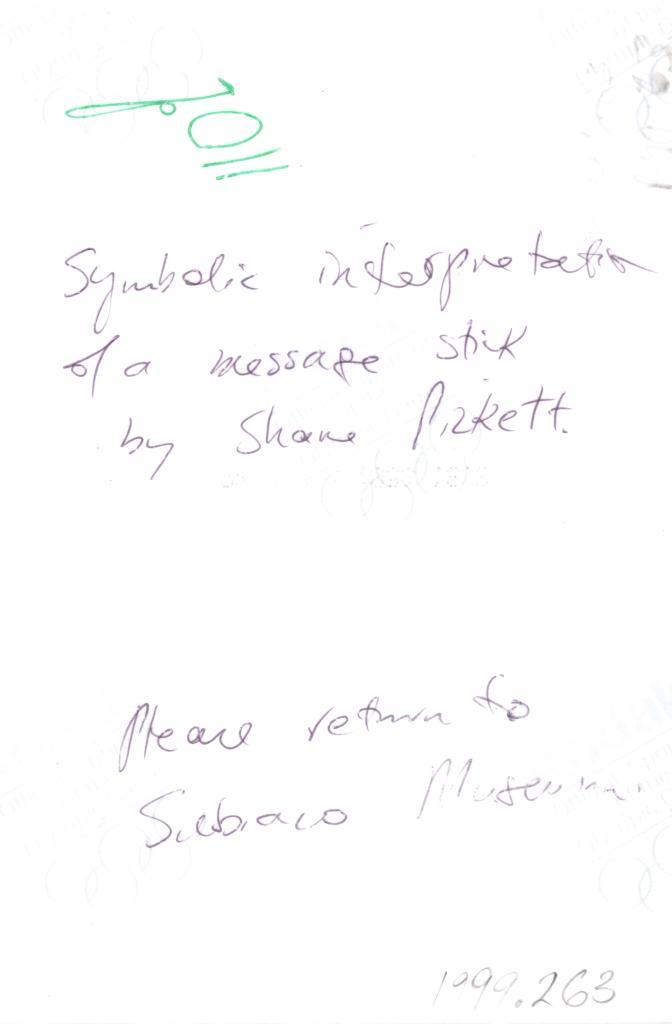 Symbolic interpretation
of a message stick
by Shane Pickett.
Please return to
Subiaco Museum.
1999.263